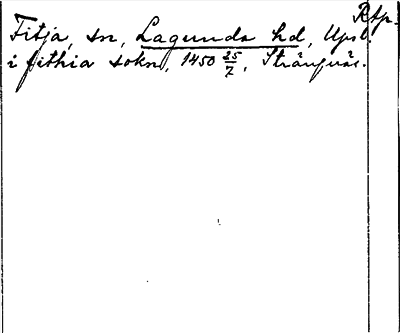 Rtp.
Fitja, sn, Lagunda hd, Upsl.
i fithia sokn, 1450 25/7, Strängnäs.